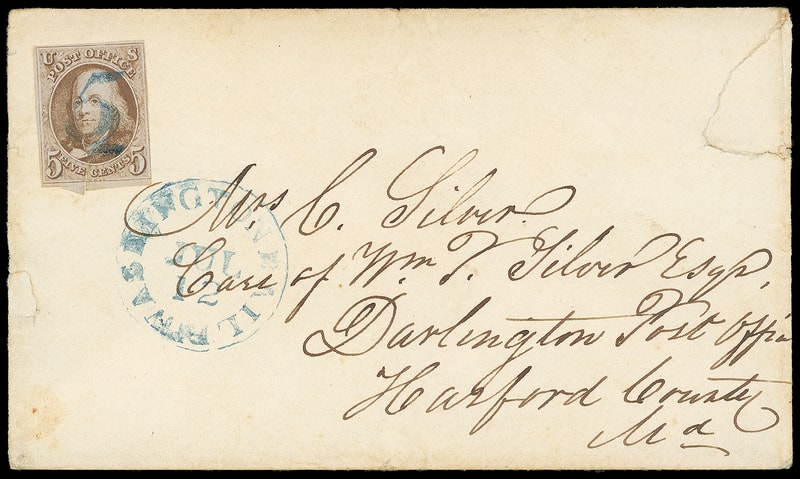 U S
POST OFFICE
5
5 FIVE CENTS 5
WASHINGTON RAIL R
JUL
12
Mrs C. Silver.
Care of Wm. F. Silver Esqr,
Darlington Post Office
Harford County
Md